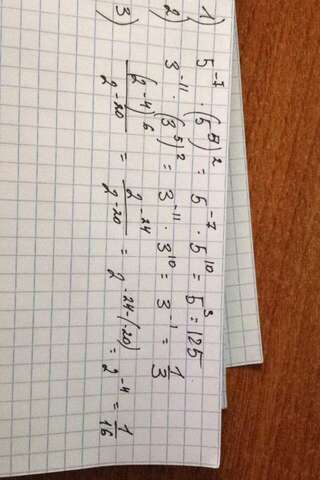 1) 5⁻⁷ · (5⁵)² = 5⁻⁷ · 5¹⁰ = 5³ = 125
2) 3⁻¹¹ · (3⁵)² = 3⁻¹¹ · 3¹⁰ = 3⁻¹ = 1/3
3) (2⁻⁴)⁶/2⁻²⁰ = 2⁻²⁴/2⁻²⁰ = 2⁻²⁴⁻⁽⁻²⁰⁾ = 2⁻⁴ = 1/16